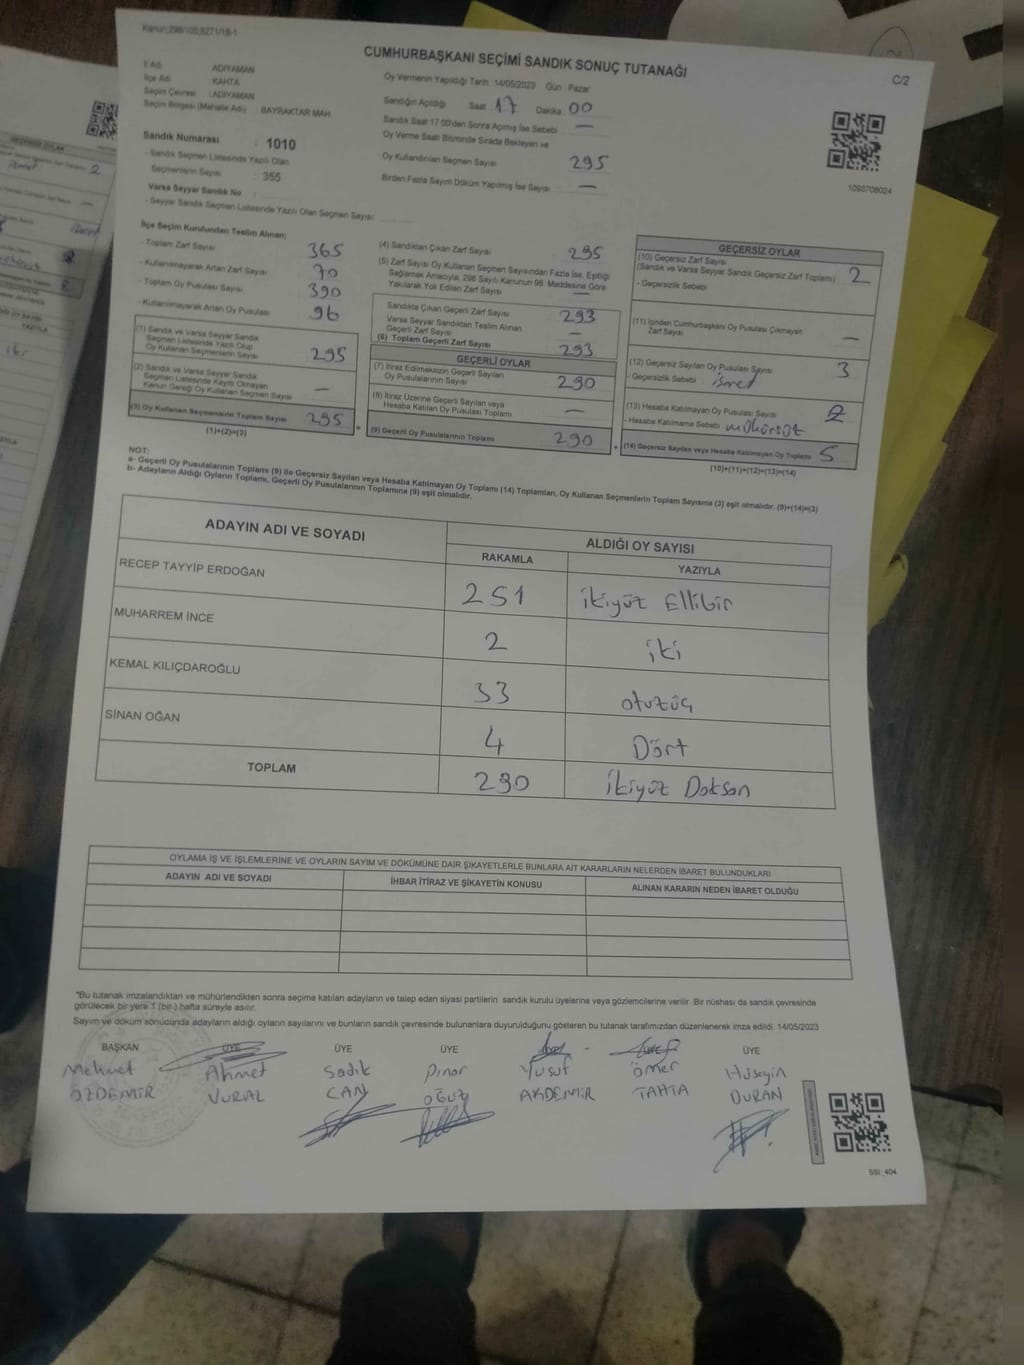 Kanun 298/105,6271/18-1
CUMHURBAŞKANI SEÇİMİ SANDIK SONUÇ TUTANAĞI
C/2
İl Adı : ADIYAMAN
İlçe Adı : KAHTA
Seçim Çevresi : ADIYAMAN
Seçim Bölgesi (Mahalle Adı) : BAYRAKTAR MAH.
Oy Vermenin Yapıldığı Tarih: 14/05/2023 Gün : Pazar
Sandığın Açıldığı Saat 17 Dakika : 00
Sandık Saat 17:00'den Sonra Açılmış İse Sebebi : —
Oy Verme Saati Bitiminde Sırada Bekleyen ve
Oy Kullandırılan Seçmen Sayısı 295
Birden Fazla Sayım Döküm Yapılmış İse Sayısı —
1093708024
Sandık Numarası : 1010
- Sandık Seçmen Listesinde Yazılı Olan
Seçmenlerin Sayısı : 355
Varsa Seyyar Sandık No :
- Seyyar Sandık Seçmen Listesinde Yazılı Olan Seçmen Sayısı:
İlçe Seçim Kurulundan Teslim Alınan;
- Toplam Zarf Sayısı 365
- Kullanılmayarak Artan Zarf Sayısı 70
- Toplam Oy Pusulası Sayısı 390
- Kullanılmayarak Artan Oy Pusulası 96
(1) Sandık ve Varsa Seyyar Sandık
Seçmen Listesinde Yazılı Olup
Oy Kullanan Seçmenlerin Sayısı 295
(2) Sandık ve Varsa Seyyar Sandık
Seçmen Listesinde Kayıtlı Olmayan
Kanun Gereği Oy Kullanan Seçmen Sayısı —
(3) Oy Kullanan Seçmenlerin Toplam Sayısı 295
(1)+(2)=(3)
(4) Sandıktan Çıkan Zarf Sayısı 295
(5) Zarf Sayısı Oy Kullanan Seçmen Sayısından Fazla İse, Eşitliği
Sağlamak Amacıyla, 298 Sayılı Kanunun 98. Maddesine Göre
Yakılarak Yok Edilen Zarf Sayısı —
Sandıkta Çıkan Geçerli Zarf Sayısı 293
Varsa Seyyar Sandıktan Teslim Alınan
Geçerli Zarf Sayısı —
(6) Toplam Geçerli Zarf Sayısı 293
GEÇERLİ OYLAR
(7) İtiraz Edilmeksizin Geçerli Sayılan
Oy Pusulalarının Sayısı 290
(8) İtiraz Üzerine Geçerli Sayılan veya
Hesaba Katılan Oy Pusulası Toplamı —
(9) Geçerli Oy Pusulalarının Toplamı 290
GEÇERSİZ OYLAR
(10) Geçersiz Zarf Sayısı
(Sandık ve Varsa Seyyar Sandık Geçersiz Zarf Toplamı) 2
- Geçersizlik Sebebi
(11) İçinden Cumhurbaşkanı Oy Pusulası Çıkmayan
Zarf Sayısı —
(12) Geçersiz Sayılan Oy Pusulası Sayısı 3
- Geçersizlik Sebebi : ismet
(13) Hesaba Katılmayan Oy Pusulası Sayısı 2
- Hesaba Katılmama Sebebi : mühürsüz
(14) Geçersiz Sayılan veya Hesaba Katılmayan Oy Toplamı 5
(10)+(11)+(12)+(13)=(14)
NOT:
a- Geçerli Oy Pusulalarının Toplamı (9) ile Geçersiz Sayılan veya Hesaba Katılmayan Oy Toplamı (14) Toplamları, Oy Kullanan Seçmenlerin Toplam Sayısına (3) eşit olmalıdır. (9)+(14)=(3)
b- Adayların Aldığı Oyların Toplamı, Geçerli Oy Pusulalarının Toplamına (9) eşit olmalıdır.
ADAYIN ADI VE SOYADI ALDIĞI OY SAYISI
RAKAMLA YAZIYLA
RECEP TAYYİP ERDOĞAN 251 ikiyüz Ellibir
MUHARREM İNCE 2 iki
KEMAL KILIÇDAROĞLU 33 otuzüç
SİNAN OĞAN 4 Dört
TOPLAM 290 ikiyüz Doksan
OYLAMA İŞ VE İŞLEMLERİNE VE OYLARIN SAYIM VE DÖKÜMÜNE DAİR ŞİKAYETLERLE BUNLARA AİT KARARLARIN NELERDEN İBARET BULUNDUKLARI
ADAYIN ADI VE SOYADI İHBAR İTİRAZ VE ŞİKAYETİN KONUSU ALINAN KARARIN NEDEN İBARET OLDUĞU
"Bu tutanak imzalandıktan ve mühürlendikten sonra seçime katılan adayların ve talep eden siyasi partilerin sandık kurulu üyelerine veya gözlemcilerine verilir. Bir nüshası da sandık çevresinde
görülecek bir yere 1 (bir-) hafta süreyle asılır.
Sayım ve döküm sonucunda adayların aldığı oyların sayılarını ve bunların sandık çevresinde bulunanlara duyurulduğunu gösteren bu tutanak tarafımızdan düzenlenerek imza edildi. 14/05/2023
BAŞKAN ÜYE ÜYE ÜYE ÜYE ÜYE
Mehmet Ahmet Sadık Pınar Yusuf Ömer Hüseyin
ÖZDEMİR VURAL CAN OĞUZ AKDEMİR TAHTA DURAN
SSI_404